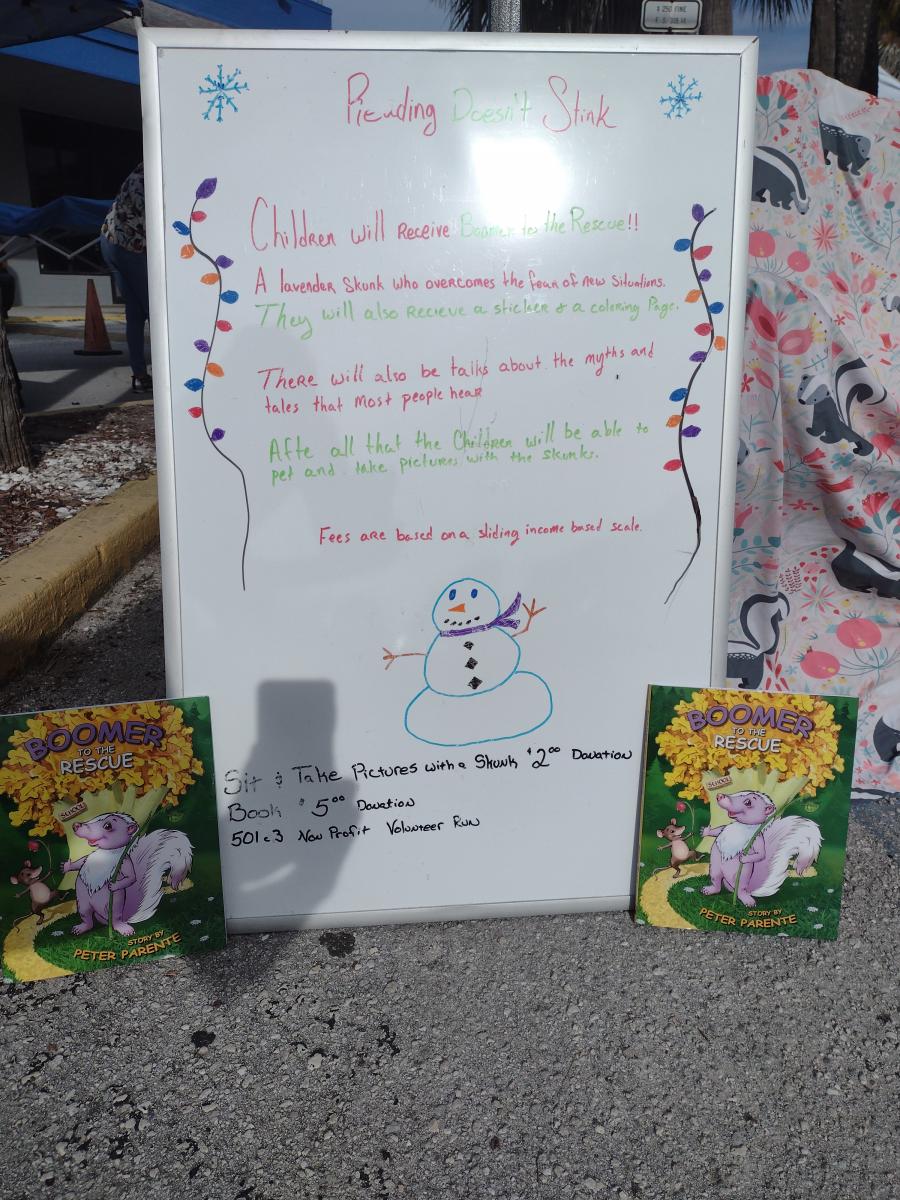 $ 250 FINE
Reading Doesn't Stink
Children will receive Boomer to the Rescue!!
A lavender Skunk who overcomes the fear of new Situations.
They will also recieve a sticker & a coloring Page.
There will also be talks about the myths and
tales that most people hear
Afte all that the Children will be able to
pet and take pictures with the skunks.
Fees are based on a sliding income based scale.
Sit & Take Pictures with a Skunk $2.00 Donation
Book $5.00 Donation
501c3 Non Profit Volunteer Run
BOOMER
TO THE
RESCUE
SCHOOL
STORY BY
PETER PARENTE
BOOMER
TO THE
RESCUE
SCHOOL
STORY BY
PETER PARENTE